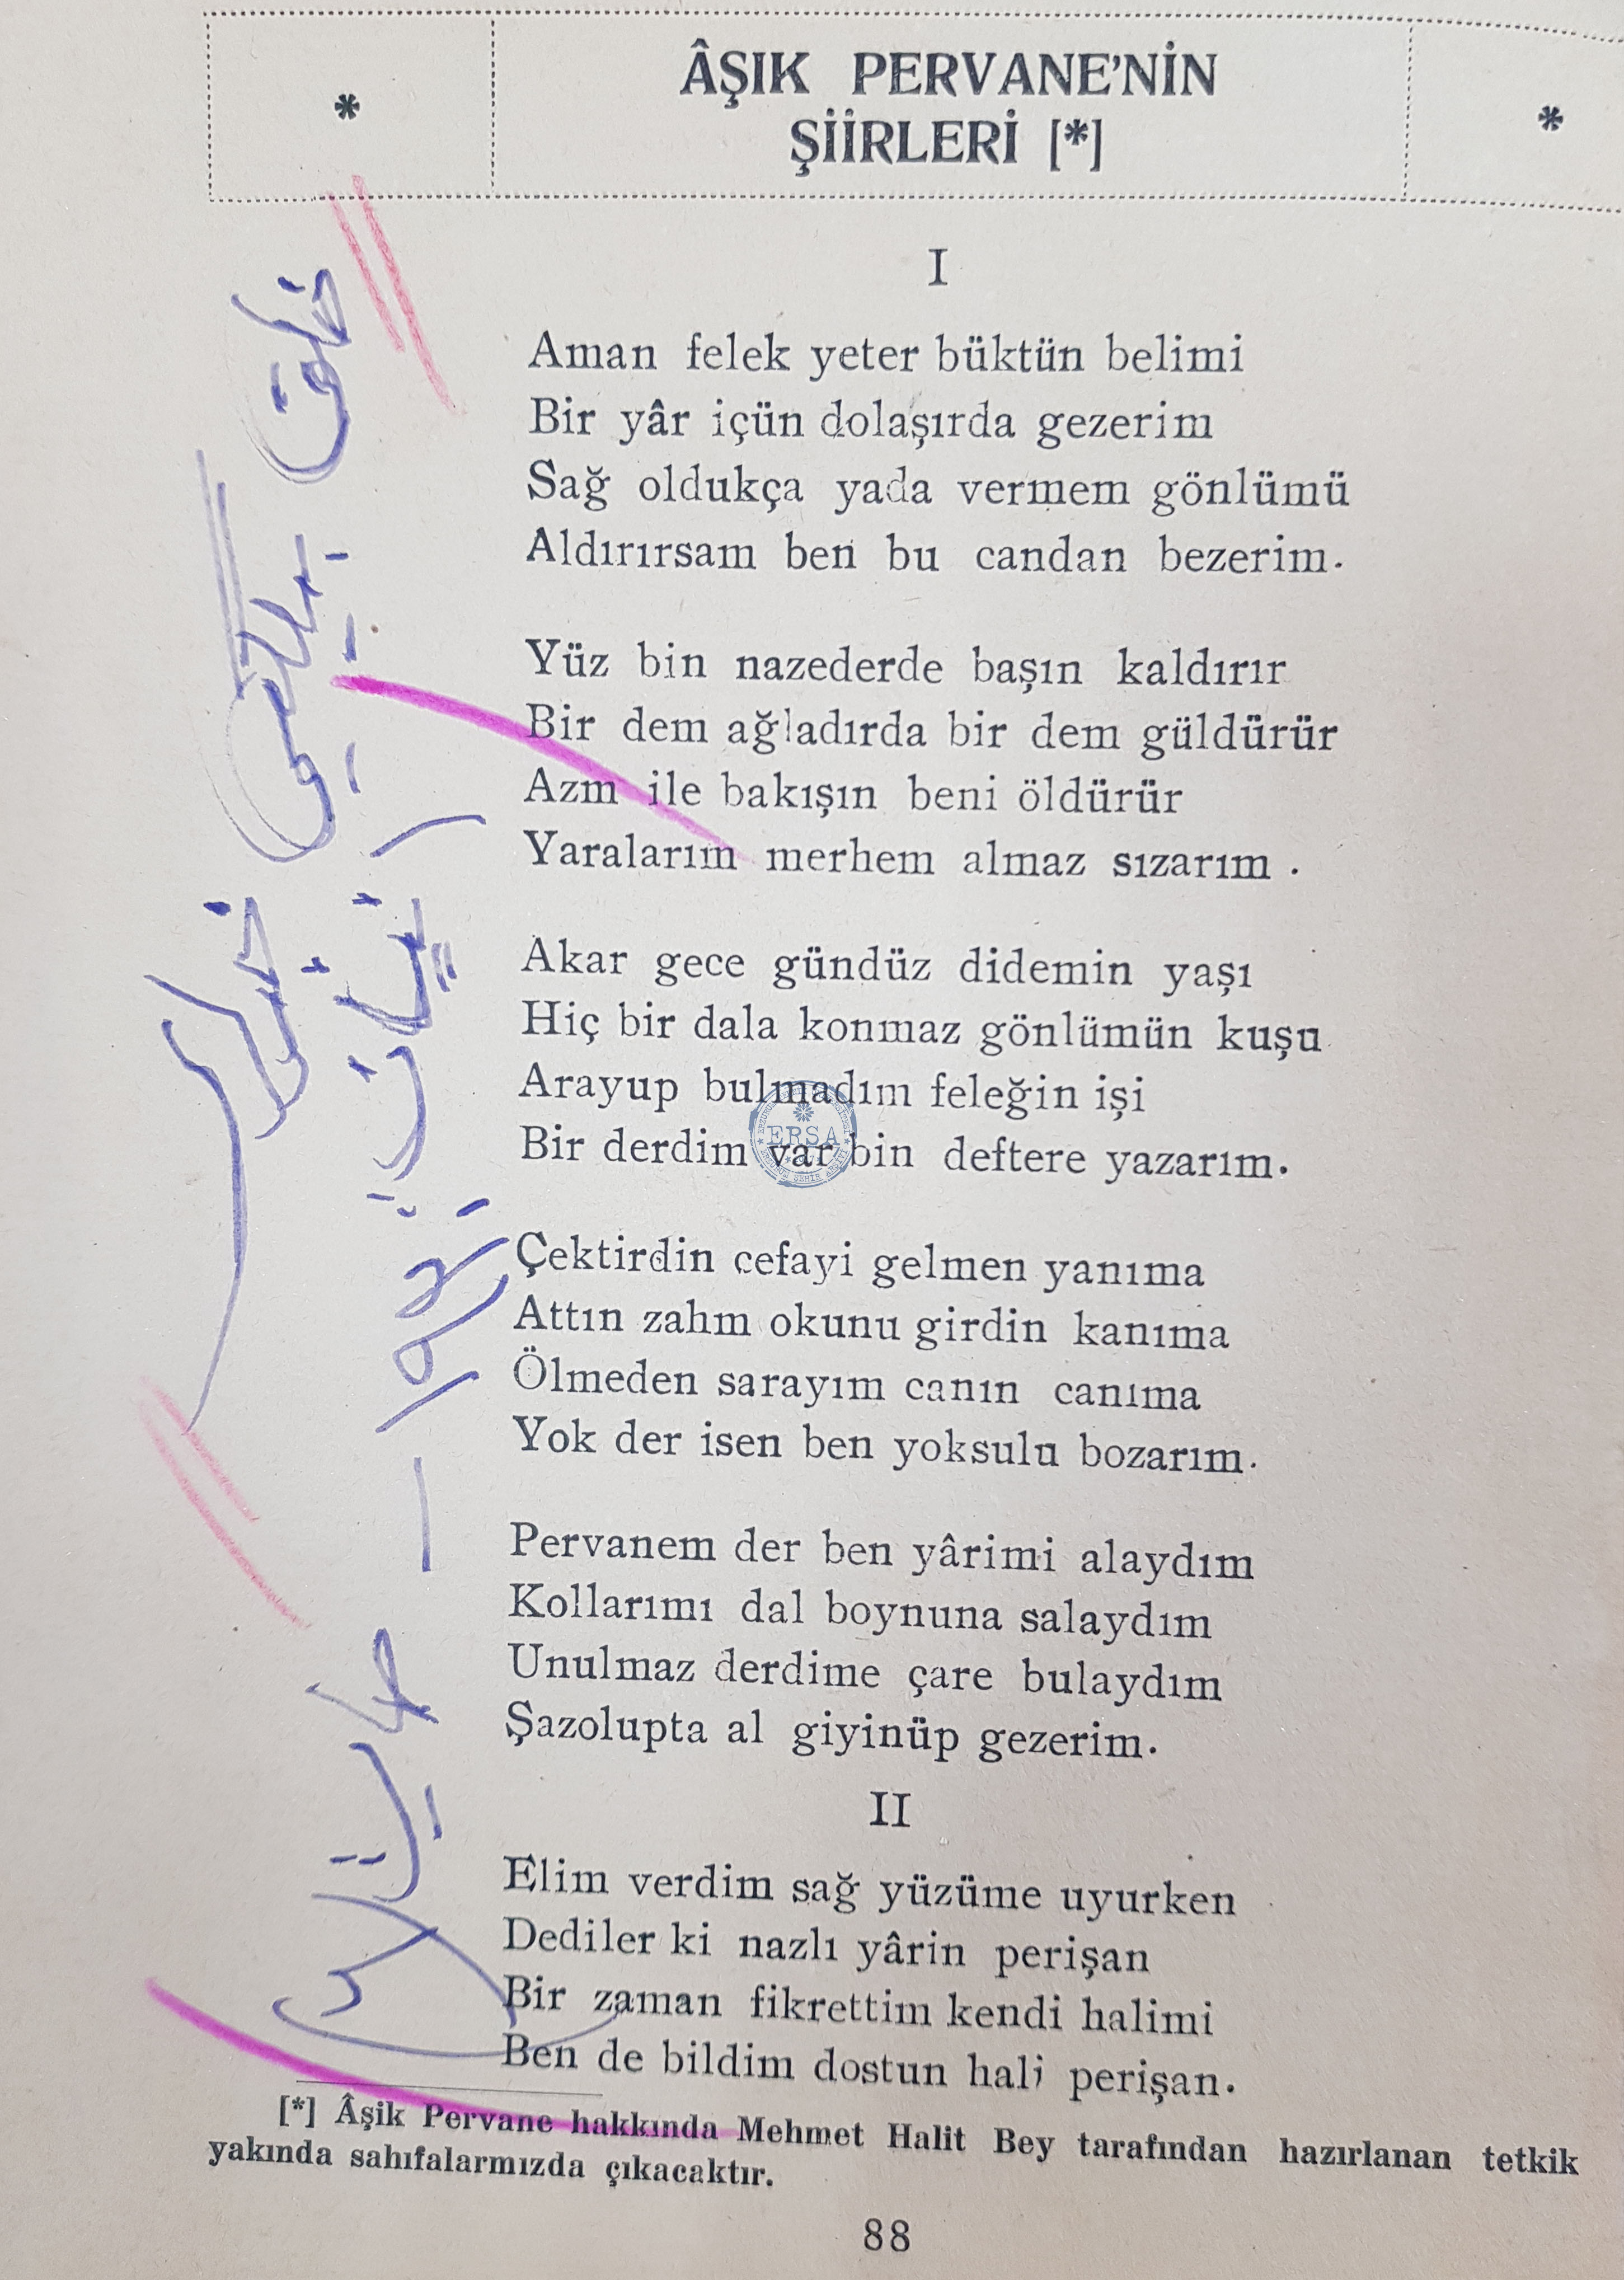 *
ÂŞIK PERVANE'NİN
ŞİİRLERİ [*]
*
I
Aman felek yeter büktün belimi
Bir yâr içün dolaşırda gezerim
Sağ oldukça yada vermem gönlümü
Aldırırsam ben bu candan bezerim.
Yüz bin nazederde başın kaldırır
Bir dem ağladırda bir dem güldürür
Azm ile bakışın beni öldürür
Yaralarım merhem almaz sızarım.
Akar gece gündüz didemin yaşı
Hiç bir dala konmaz gönlümün kuşu
Arayup bulmadım feleğin işi
Bir derdim var bin deftere yazarım.
ERSA
Çektirdin cefayi gelmen yanıma
Attın zahm okunu girdin kanıma
Ölmeden sarayım canın canıma
Yok der isen ben yoksulu bozarım.
Pervanem der ben yârimi alaydım
Kollarımı dal boynuna salaydım
Unulmaz derdime çare bulaydım
Şazolupta al giyinüp gezerim.
II
Elim verdim sağ yüzüme uyurken
Dediler ki nazlı yârin perişan
Bir zaman fikrettim kendi halimi
Ben de bildim dostun hali perişan.
[*] Âşik Pervane hakkında Mehmet Halit Bey tarafından hazırlanan tetkik
yakında sahıfalarmızda çıkacaktır.
88